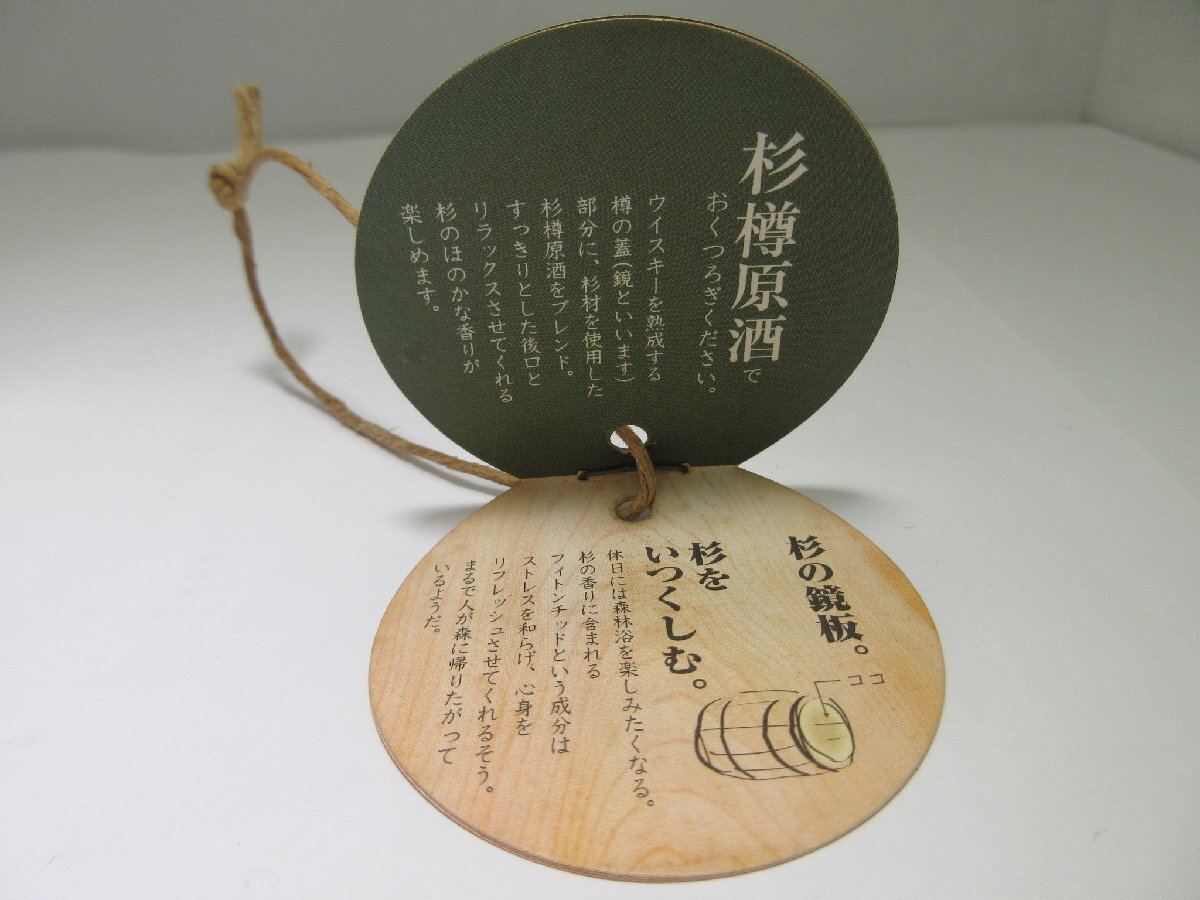 杉樽原酒で
おくつろぎください。
ウイスキーを熟成する
樽の蓋(鏡といいます)
部分に、杉材を使用した
杉樽原酒をブレンド。
すっきりとした後口と
リラックスさせてくれる
杉のほのかな香りが
楽しめます。
杉の鏡板。
ココ
杉を
いつくしむ。
休日には森林浴を楽しみたくなる。
杉の香りに含まれる
フィトンチッドという成分は
ストレスを和らげ、心身を
リフレッシュさせてくれるそう。
まるで人が森に帰りたがって
いるようだ。